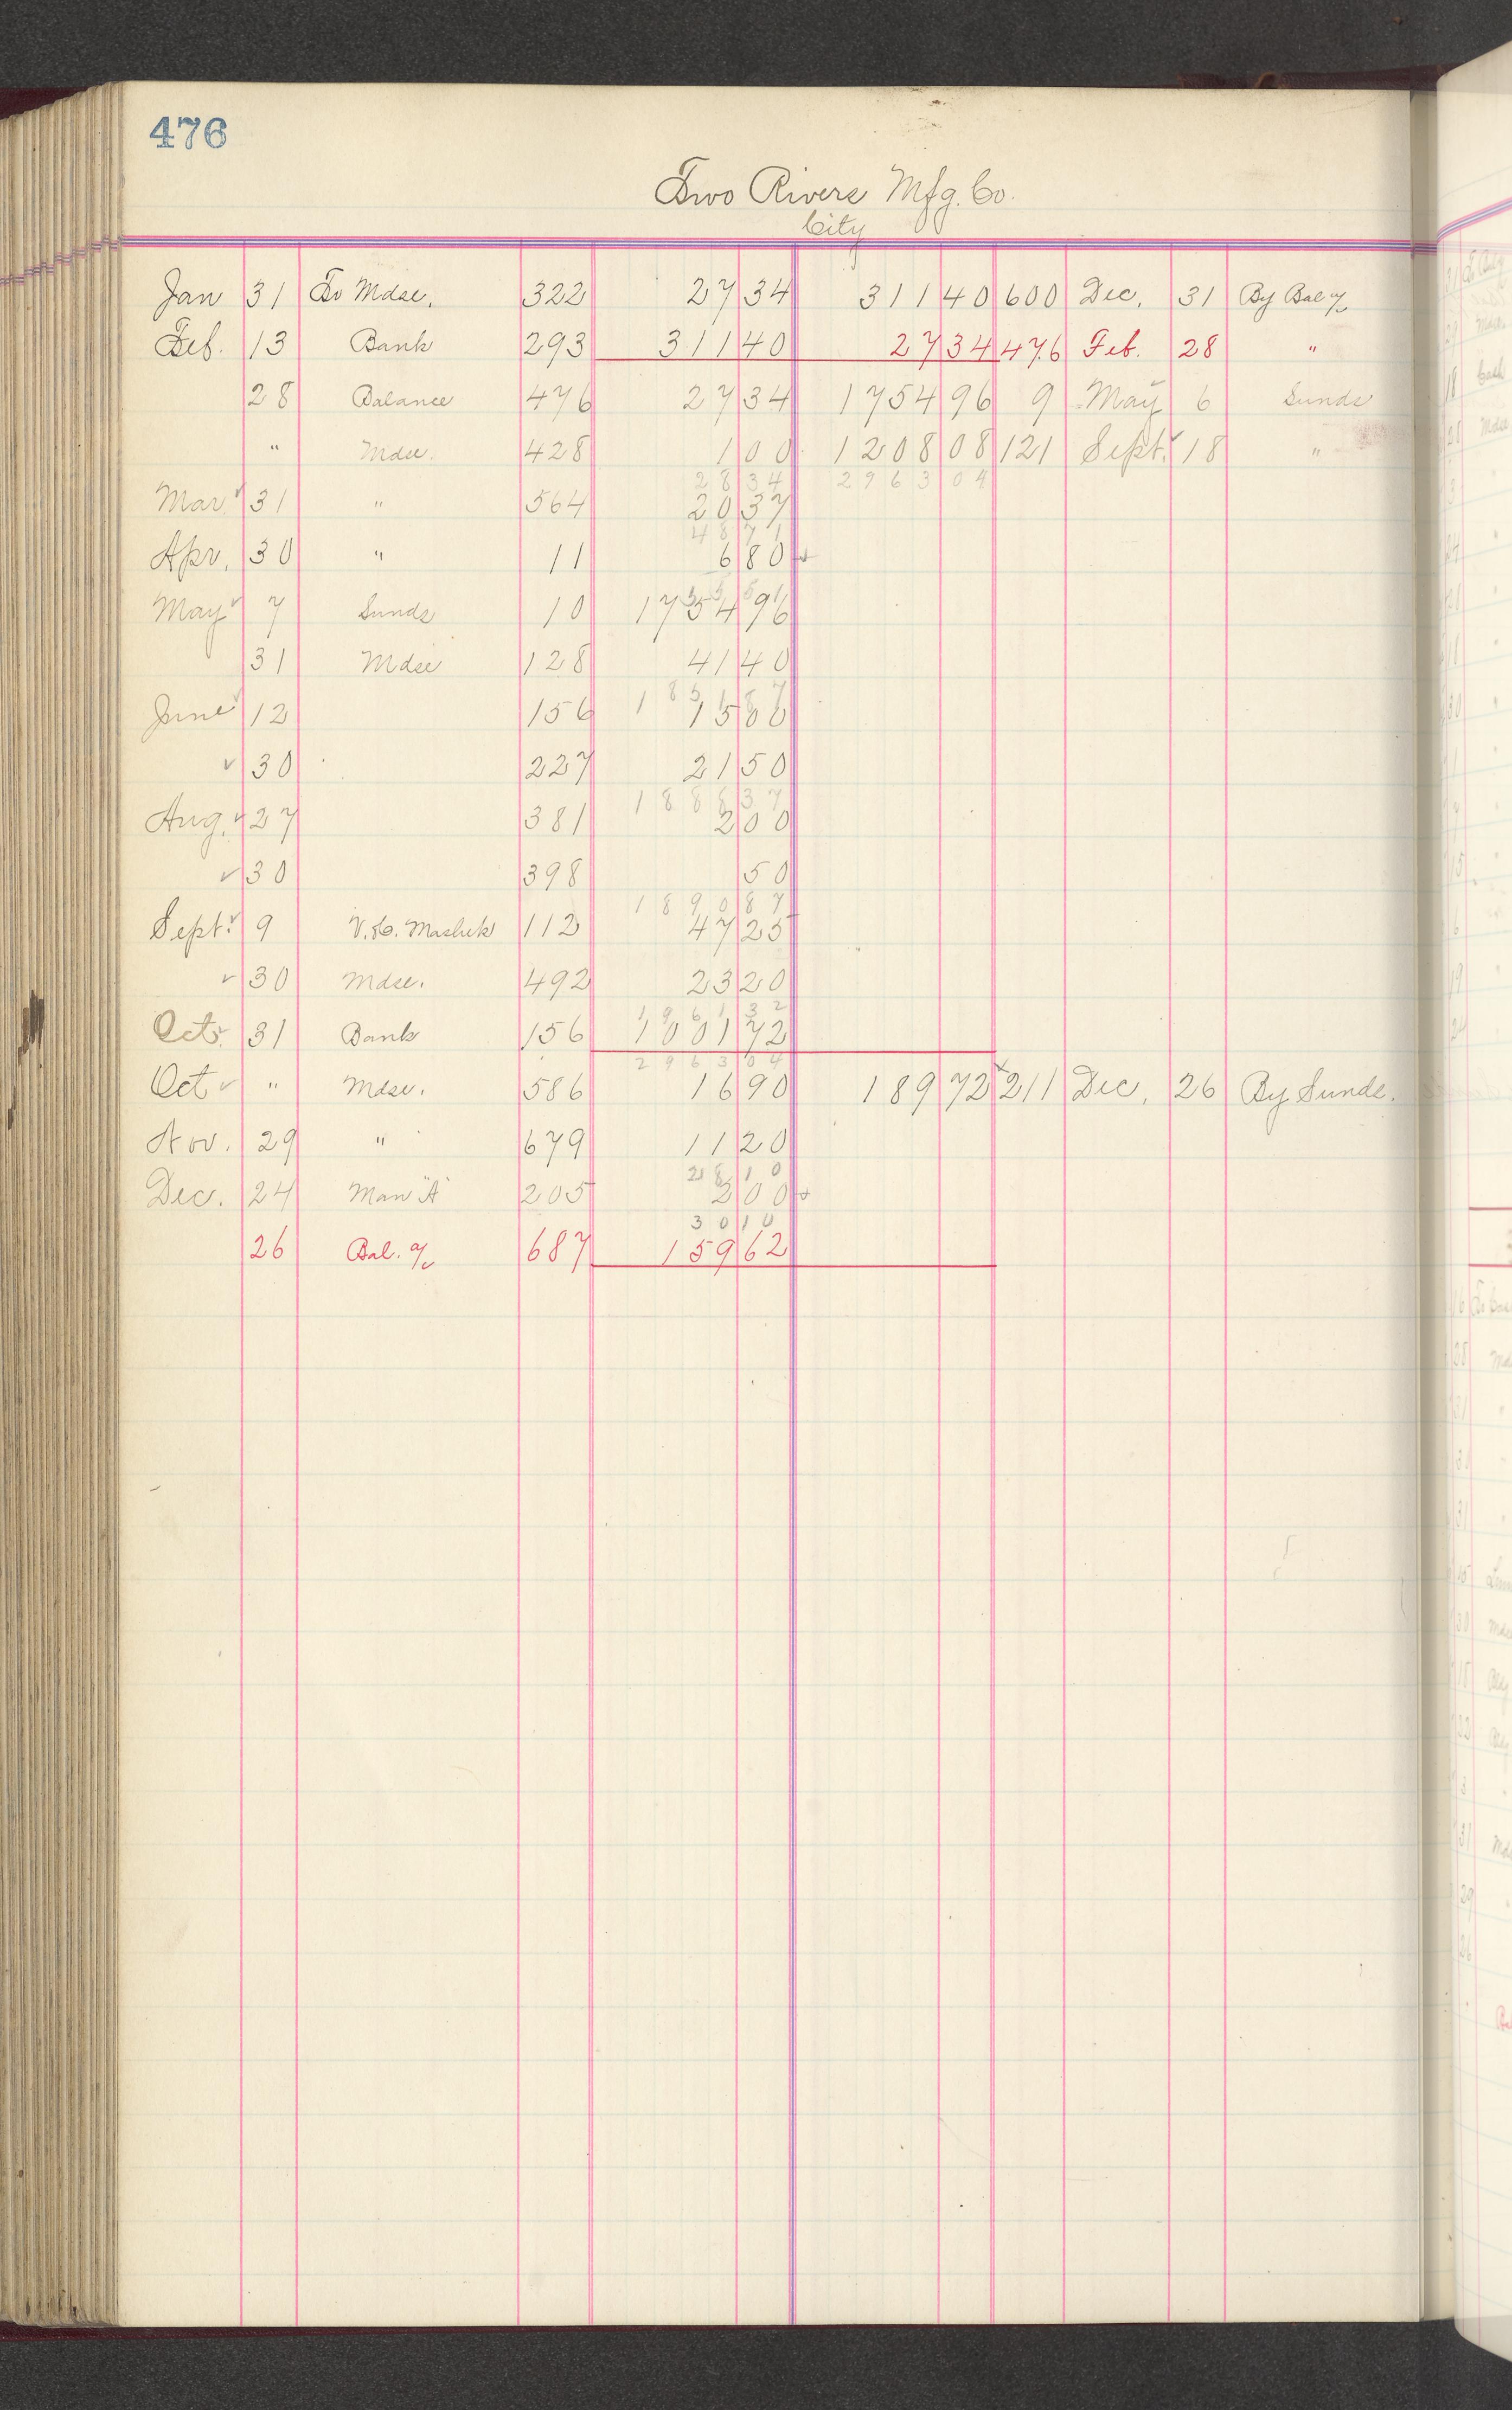 476
Two Rivers Mfg. Co.
City
Jan 31 To Mdse. 322 27 34 311 40 600 Dec. 31 By Bal a/c
Feb. 13 Bank 293 311 40 27 34 476 Feb. 28 "
28 Balance 476 27 34 1754 96 9 May 6 Sunds
" Mdse. 428 1 00 1208 08 121 Sept. 18 "
28 34 2963 04
Mar. 31 " 564 20 37
48 71
Apr. 30 " 11 6 80
55 51
May 7 Sunds 10 1754 96
31 Mdse 128 41 40
1851 87
June 12 156 15 00
30 227 21 50
1888 37
Aug. 27 381 2 00
30 398 50
1890 87
Sept. 9 112 47 25
30 Mdse. 492 23 20
1961 32
Oct. 31 Bank 156 1001 72
2963 04
Oct " Mdse. 586 16 90 189 72 211 Dec. 26 By Sunds.
Nov. 29 " 679 11 20
28 10
Dec. 24 Man "A" 205 2 00
30 10
26 Bal. a/c 687 159 62